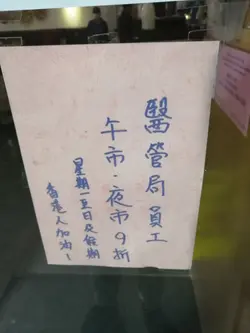 醫管局員工
午市·夜市9折
星期一至日及假期
香港人加油!